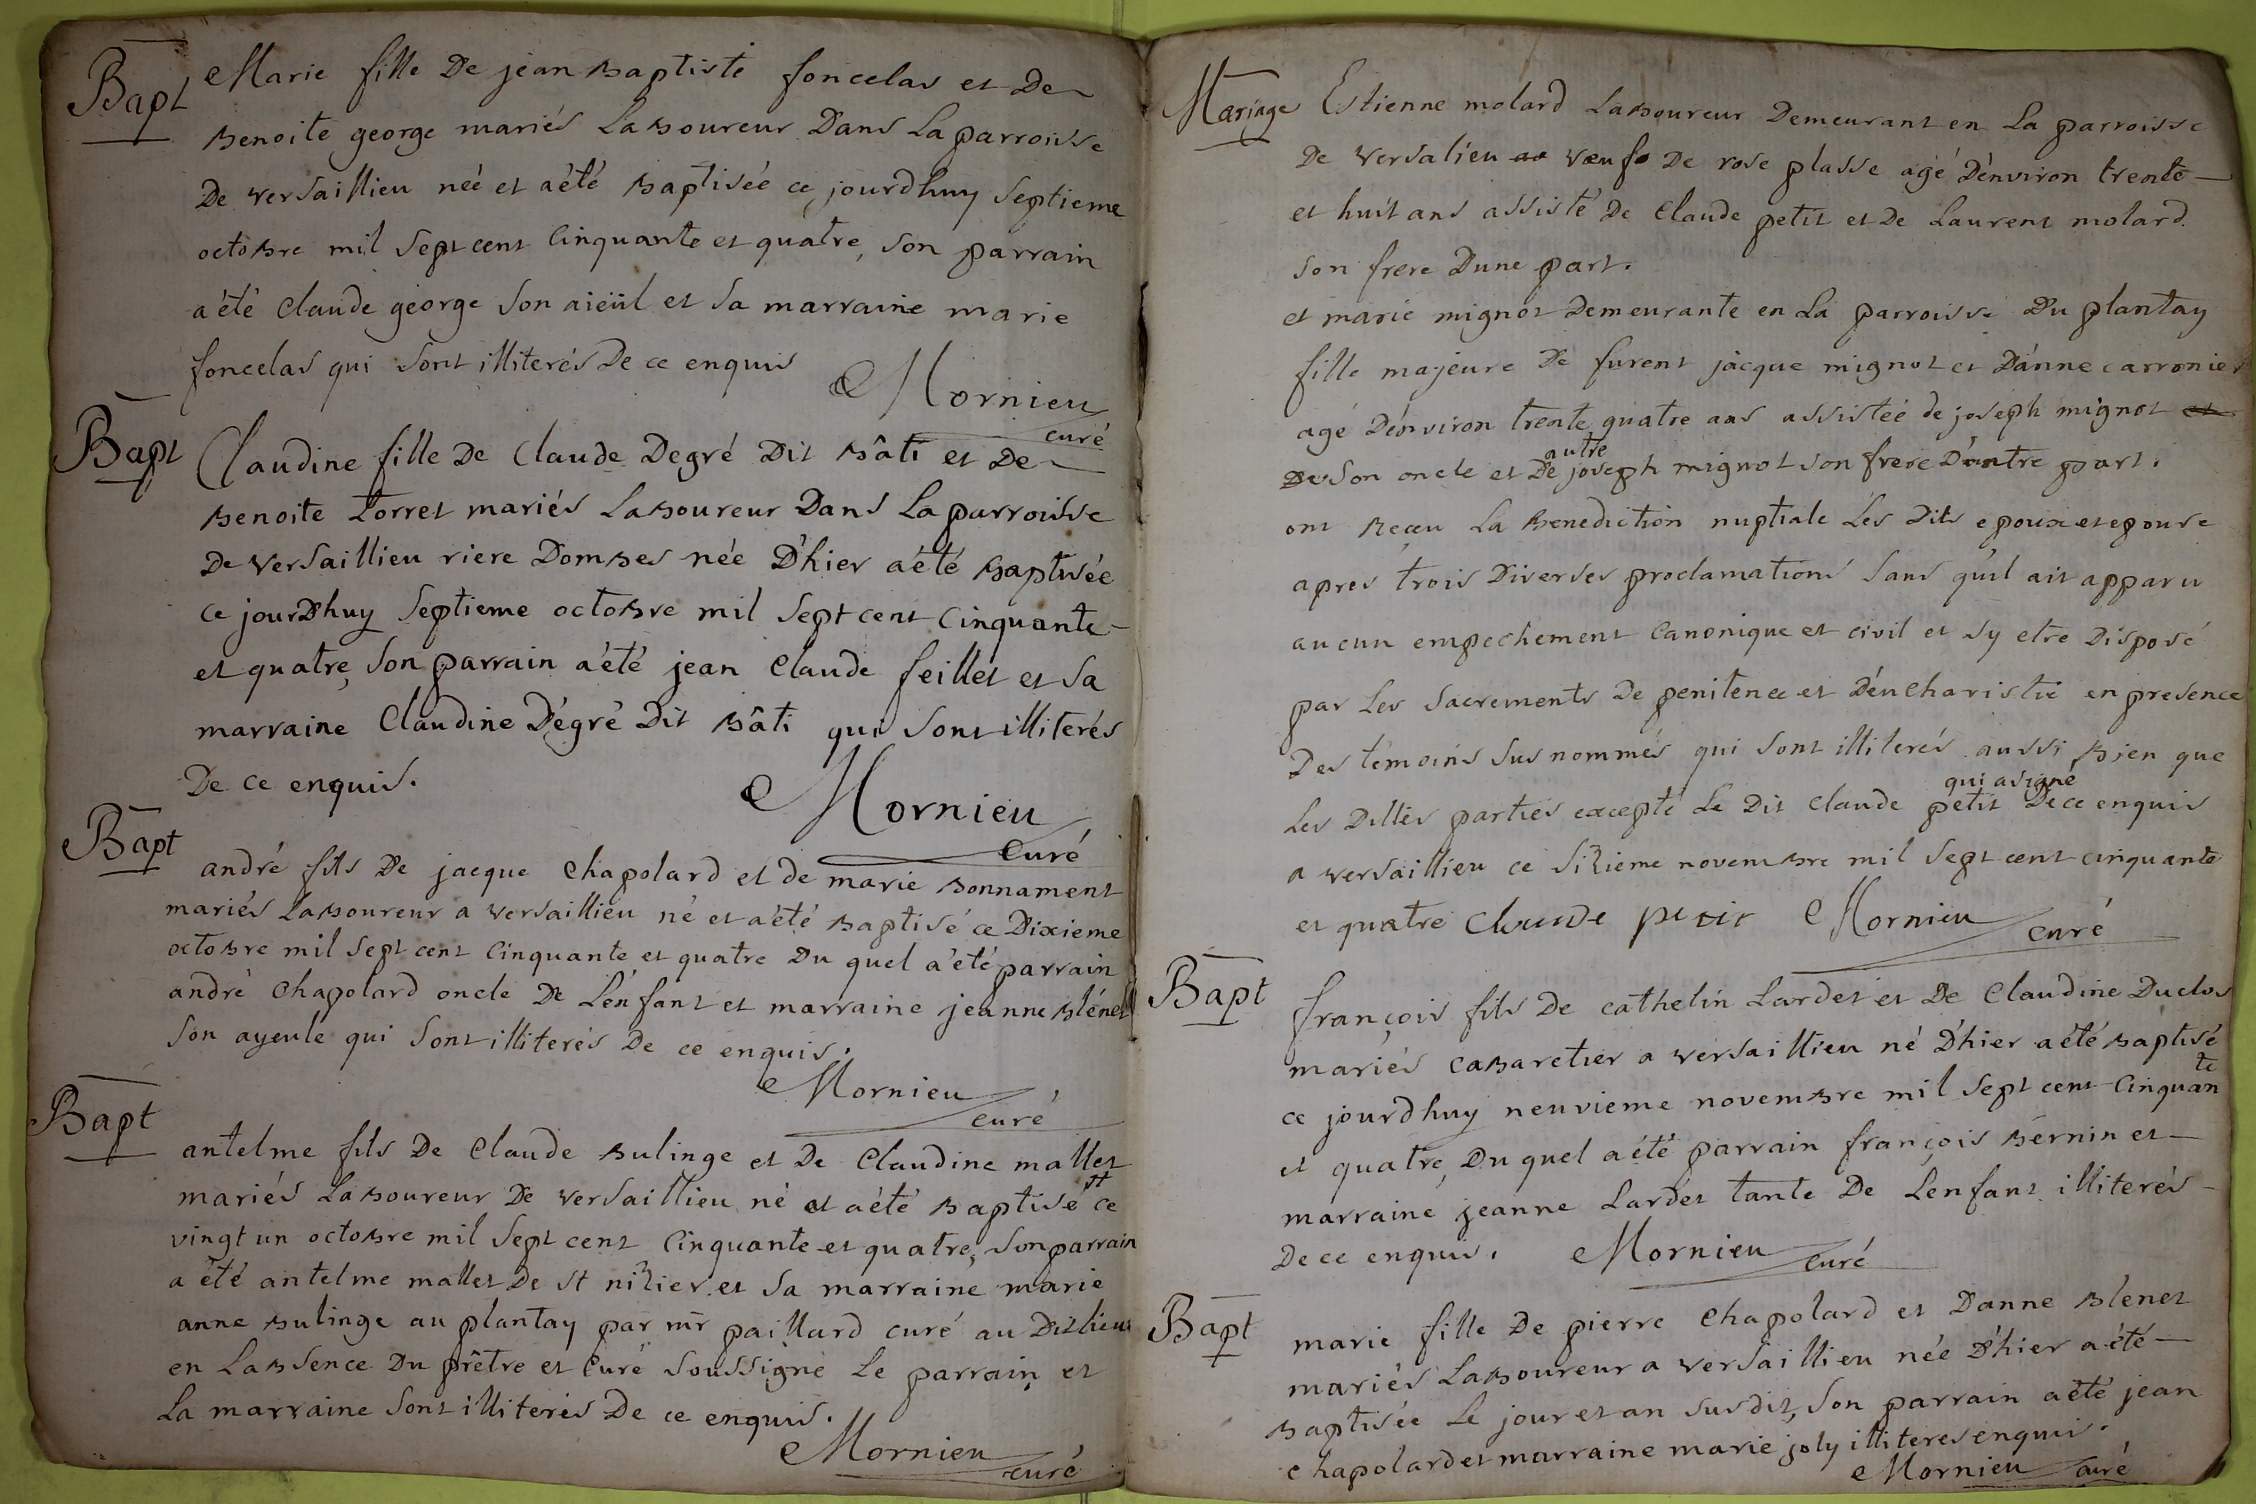 Bapt Marie fille De jean Baptiste foncelas et De
Benoite george mariés Laboureur Dans La parroisse
De versaillieu neé et a été Baptiseé ce jourdhuy septieme
octobre mil sept cent Cinquante et quatre, son parrain
a été Claude george son aieül et sa marraine marie
foncelas qui sont illiterés De ce enquis
Mornieu
curé
Bapt Claudine fille De Claude Degré Dit Bâti et De
Benoite Torret mariés Laboureur Dans La parroisse
De versaillieu riere Dombes née D'hier a été Baptisée
ce jourdhuy septieme octobre mil sept cent Cinquante
et quatre, son parrain a été jean Claude feillet et sa
marraine Claudine Dégré Dit Bâti qui sont illiterés
De ce enquis.
Mornieu
Curé
Bapt andré fils De jacque Chapolard et de marie Bonnament
mariés Laboureur a versaillieu né et a été Baptisé ce Dixieme
octobre mil sept cent Cinquante et quatre Du quel a été parrain
andré Chapolard oncle De L'enfant et marraine jeanne Blénet
son ayeule qui sont illiterés De ce enquis.
Mornieu
curé
Bapt antelme fils De Claude Bulinge et De Claudine mallet
mariés Laboureur De versaillieu né et a été Baptisé ce
vingt un octobre mil sept cent Cinquante et quatre, son parrain
a été antelme mallet De st nizier et sa marraine marie
anne Bulinge au plantay par mr paillard curé au Dit lieu
en Labsence Du prêtre et Curé soussigné Le parrain et
La marraine sont illiterés De ce enquis.
Mornieu
curé
Mariage Estienne molard Laboureur Demeurant en La parroisse
De versalieu vœuf De rose plasse agé D'environ trente
et huit ans assisté De Claude petit et De Laurent molard
son frere Dune part.
et marie mignot Demeurante en La parroisse Du plantay
fille majeure De furent jacque mignot et D'anne carronier
agé D'environ trente quatre ans assisteé de joseph mignot et
De son oncle et De autre joseph mignot son frere D'autre part.
ont Reçeu La Benediction nuptiale Les Dits epoux et epouse
apres trois Diverses proclamations sans quil ait apparu
aucun empechement Canonique et civil et sy etre Disposé
par Les sacrements De penitence et D'euCharistie en presence
Des témoins sus nommés qui sont illiterés aussi Bien que
Les Dittes parties excepté Le Dit Claude petit qui a signé De ce enquis
a versaillieu ce sizieme novembre mil sept cent cinquante
et quatre Claude petit Mornieu curé
Bapt françois fils De cathelin Lardet et De Claudine Duclos
mariés Cabaretier a versaillieu né D'hier a été Baptisé
ce jourdhuy neuvieme novembre mil sept cent Cinquante
et quatre, Du quel a été parrain françois Bernin et
marraine jeanne Lardet tante De Lenfant illiterés
De ce enquis. Mornieu Curé
Bapt marie fille De pierre Chapolard et Danne Blenet
mariés Laboureur a versaillieu née D'hier a été
Baptisée Le jour et an susdit, son parrain a été jean
Chapolard et marraine marie joly illiteres enquis.
Mornieu curé